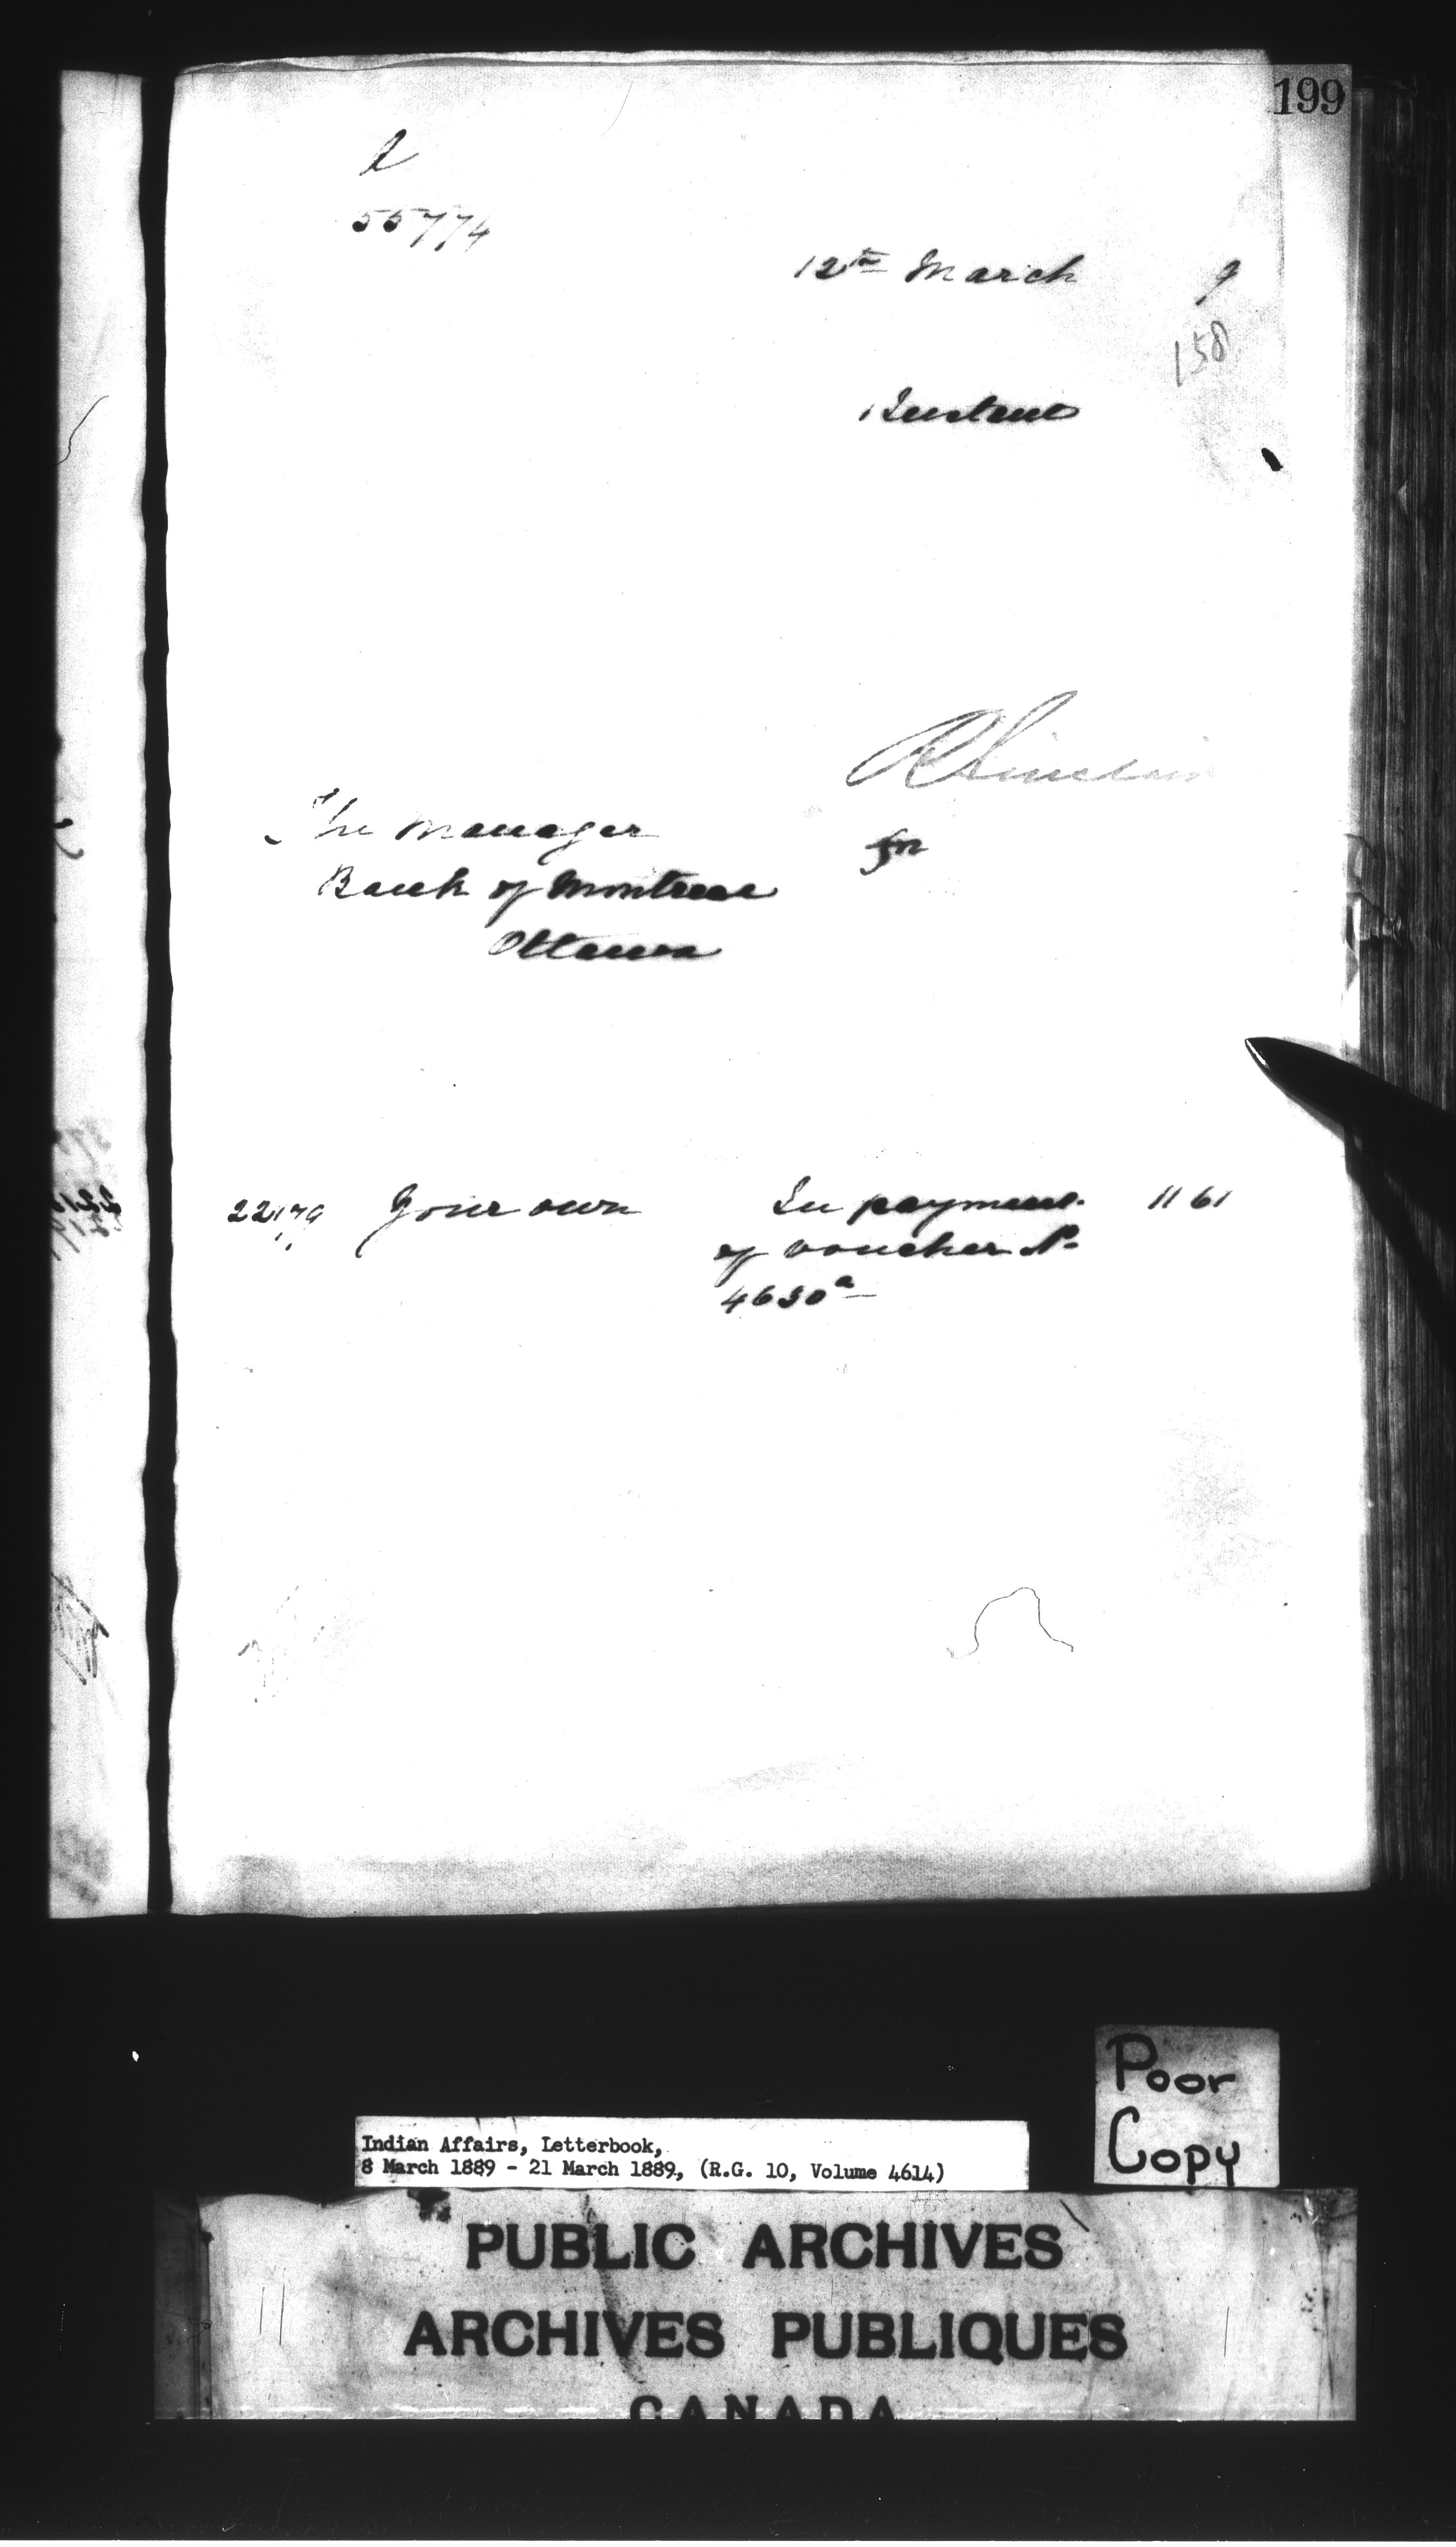 199
l
55774
12th March 9
158
Instant
R Sinclair
for
The Manager
Bank of Montreal
Ottawa
22179 Your own In payment 11 61
of voucher No
4630a
Poor
Copy
Indian Affairs, Letterbook,
8 March 1889 - 21 March 1889, (R.G. 10, Volume 4614)
PUBLIC ARCHIVES
ARCHIVES PUBLIQUES
CANADA